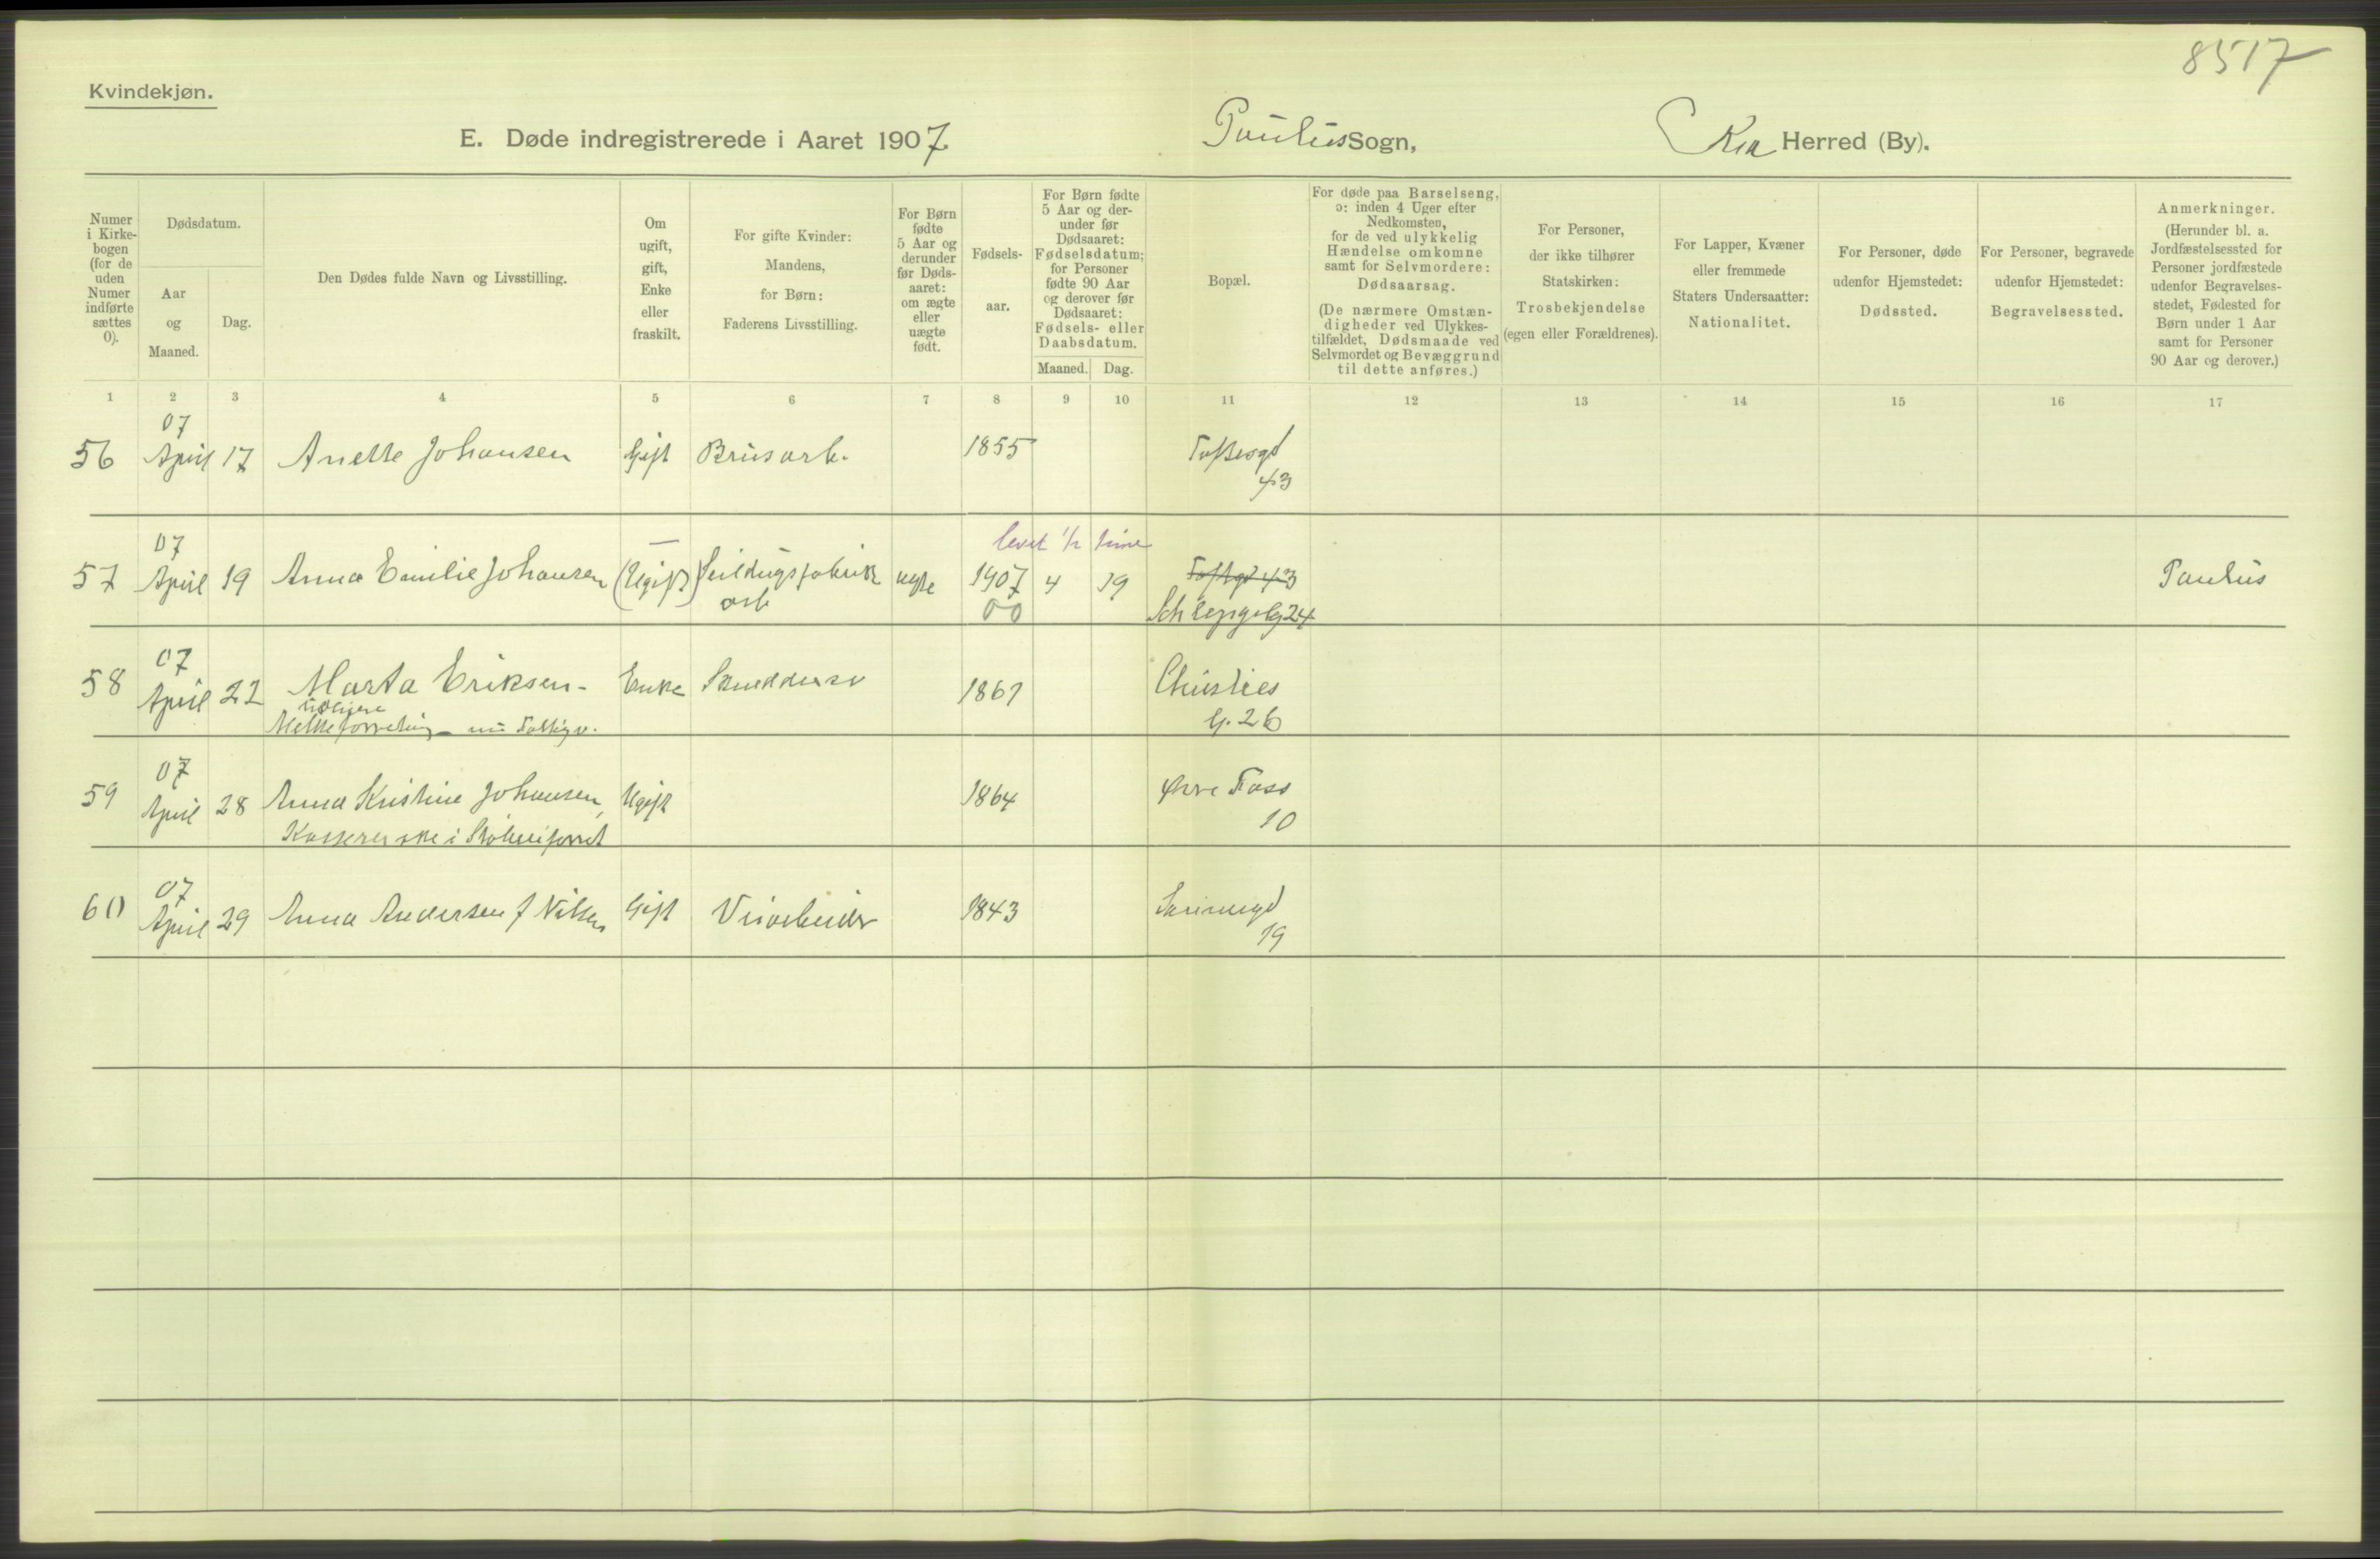 8517
Kvindekjøn.
E. Døde indregistrerede i Aaret 1907. Paulus Sogn, Kra Herred (By).
Numer i Kirkebogen (for de uden Numer indførte sættes 0).
Dødsdatum.
Aar og Maaned.
Dag.
Den Dødes fulde Navn og Livsstilling.
Om ugift, gift, Enke eller fraskilt.
For gifte Kvinder: Mandens, for Børn: Faderens Livsstilling.
For Børn fødte 5 Aar og derunder før Dødsaaret: om ægte eller uægte født.
Fødselsaar.
For Børn fødte 5 Aar og derunder før Dødsaaret: Fødselsdatum; for Personer fødte 90 Aar og derover før Dødsaaret: Fødsels- eller Daabsdatum.
Maaned. Dag.
Bopæl.
For døde paa Barselseng, ɔ: inden 4 Uger efter Nedkomsten, for de ved ulykkelig Hændelse omkomne samt for Selvmordere: Dødsaarsag.
(De nærmere Omstændigheder ved Ulykkestilfældet, Dødsmaade ved Selvmordet og Bevæggrund til dette anføres.)
For Personer, der ikke tilhører Statskirken: Trosbekjendelse (egen eller Forældrenes).
For Lapper, Kvæner eller fremmede Staters Undersaatter: Nationalitet.
For Personer, døde udenfor Hjemstedet: Dødssted.
For Personer, begravede udenfor Hjemstedet: Begravelsessted.
Anmerkninger. (Herunder bl. a. Jordfæstelsessted for Personer jordfæstede udenfor Begravelsesstedet, Fødested for Børn under 1 Aar samt for Personer 90 Aar og derover.)
1 2 3 4 5 6 7 8 9 10 11 12 13 14 15 16 17
07
56 April 17 Anette Johansen Gift Brusarb. 1855 Toftesgd
43
07 levet 1/2 time
57 April 19 Anna Emilie Johansen (Ugift) Seildugsfabrik ægte 1907 4 19 Toftgd 43 Paulus
arb 00 Schleppegrg 24
07
58 April 22 Marta Eriksen - Enke Skreddersv 1861 Christies
tidligere G. 26
Melkeforretning - nu Fattigv.
07
59 April 28 Anna Kristine Johansen, Ugift 1864 Øvre Foss
Kassererske i 10
07
60 April 29 Anna Andersen f Nilsen Gift Visarbeider 1843
19